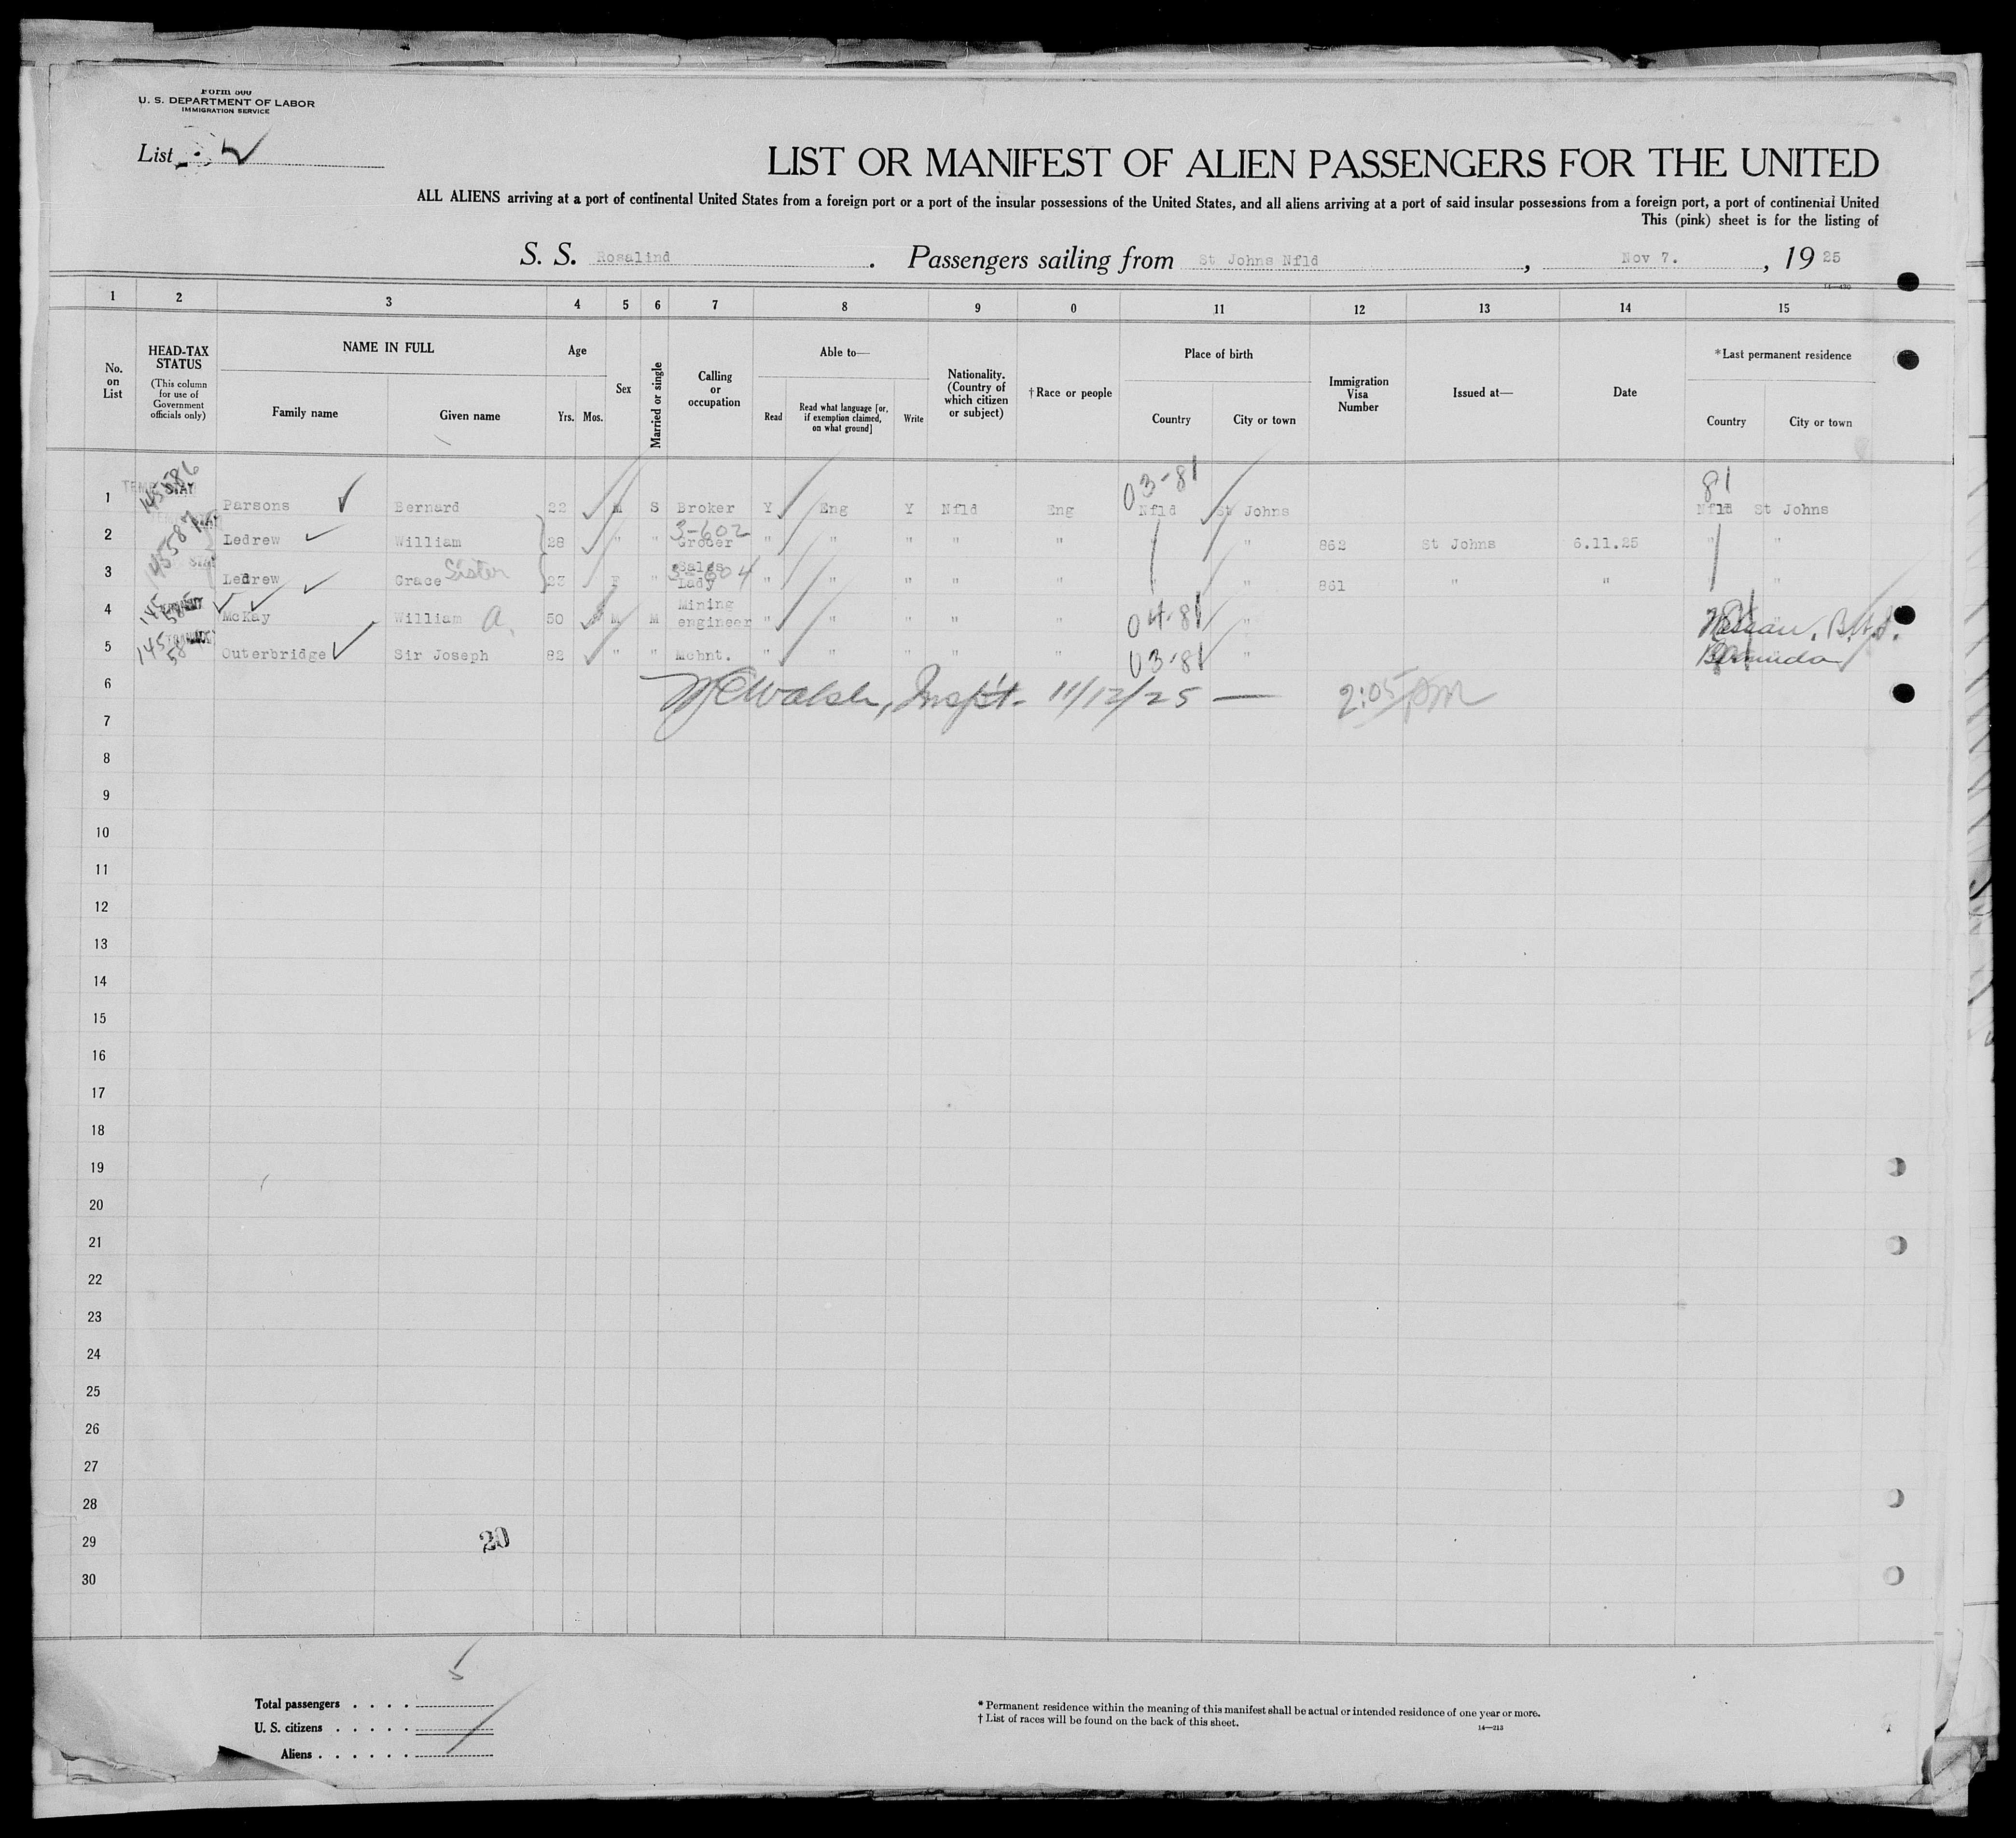 Form 500
U. S. DEPARTMENT OF LABOR
IMMIGRATION SERVICE
List
LIST OR MANIFEST OF ALIEN PASSENGERS FOR THE UNITED
ALL ALIENS arriving at a port of continental United States from a foreign port or a port of the insular possessions of the United States, and all aliens arriving at a port of said insular possessions from a foreign port, a port of continental United
This (pink) sheet is for the listing of
S. S. Rosalind. Passengers sailing from St Johns Nfld, Nov 7., 1925
1 2 3 4 5 6 7 8 9 0 11 12 13 14 15
No. on List
HEAD-TAX STATUS
(This column for use of Government officials only)
NAME IN FULL
Family name Given name
Age
Yrs. Mos.
Sex
Married or single
Calling or occupation
Able to—
Read
Read what language [or, if exemption claimed, on what ground]
Write
Nationality. (Country of which citizen or subject)
†Race or people
Place of birth
Country City or town
Immigration Visa Number
Issued at—
Date
*Last permanent residence
Country City or town
03-81 81
1 145586 Parsons Bernard 22 M S Broker Y Eng Y Nfld Eng Nfld St Johns Nfld St Johns
3-602
2 145587 STAY Ledrew William 28 " " Grocer " " " " " " 862 St Johns 6.11.25 " "
3 STAY Ledrew Grace Sister 23 F " Sales Lady " " " " " " " 861 " " "
4 145 McKay William A. 50 M M Mining engineer " " " " " 04-81 " Nassau, B.W.I.
5 145 58 Outerbridge Sir Joseph 82 " " Mchnt. " " " " " 03-81 " Bermuda
6 Walsh, Insp't. 11/12/25 — 2:05 PM
7
8
9
10
11
12
13
14
15
16
17
18
19
20
21
22
23
24
25
26
27
28
29
20
30
5
Total passengers . . . .
U. S. citizens . . . . .
Aliens . . . . . .
* Permanent residence within the meaning of this manifest shall be actual or intended residence of one year or more.
† List of races will be found on the back of this sheet.
14—213